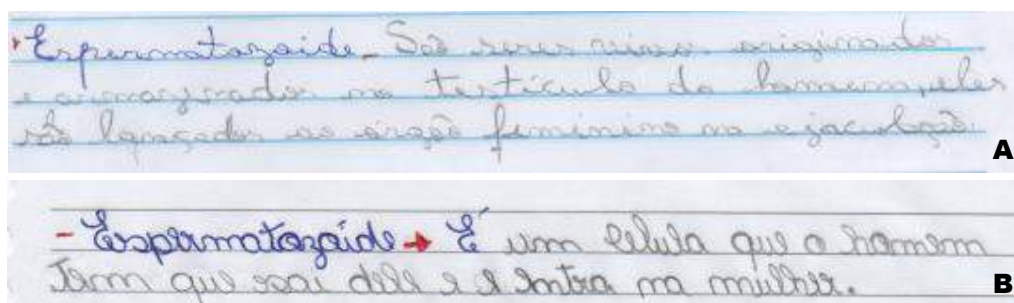 Espermatozoide - São seres vivos originados
e armazenados no testículo do homem, eles
são lançados ao órgão feminino na ejaculação.
A
- Espermatozóide → É um celula que o homem
tem que sai dele e e entra na mulher.
B